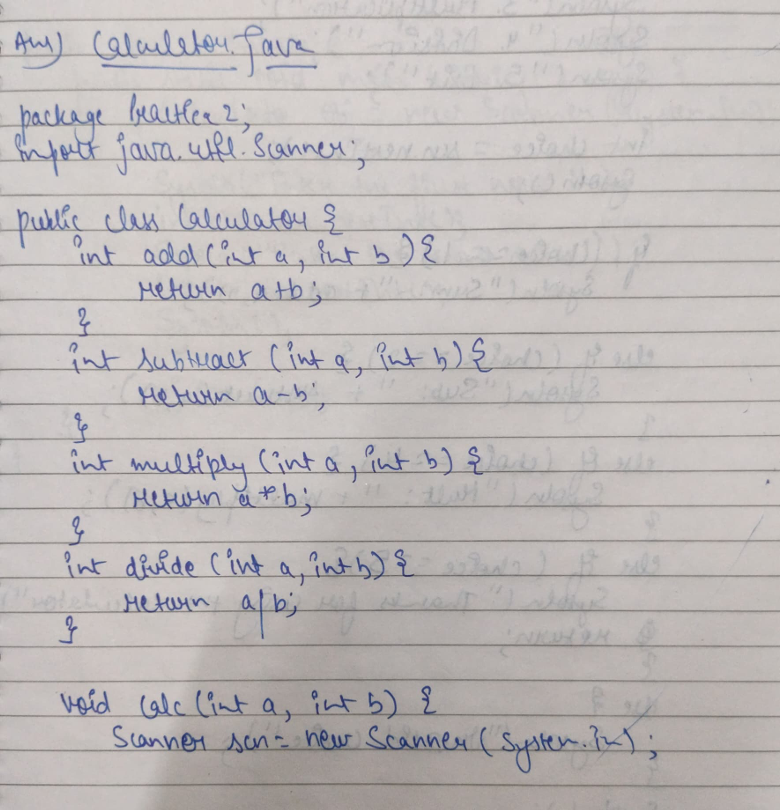 Ans) Calculator.java
package Practice 2;
import java.util.Scanner;
public class Calculator {
int add(int a, int b){
return a+b;
}
int subtract (int a, int b){
return a-b;
}
int multiply (int a, int b) {
return a*b;
}
int divide (int a, int b){
return a/b;
}
void calc (int a, int b) {
Scanner scn = new Scanner (System.in);